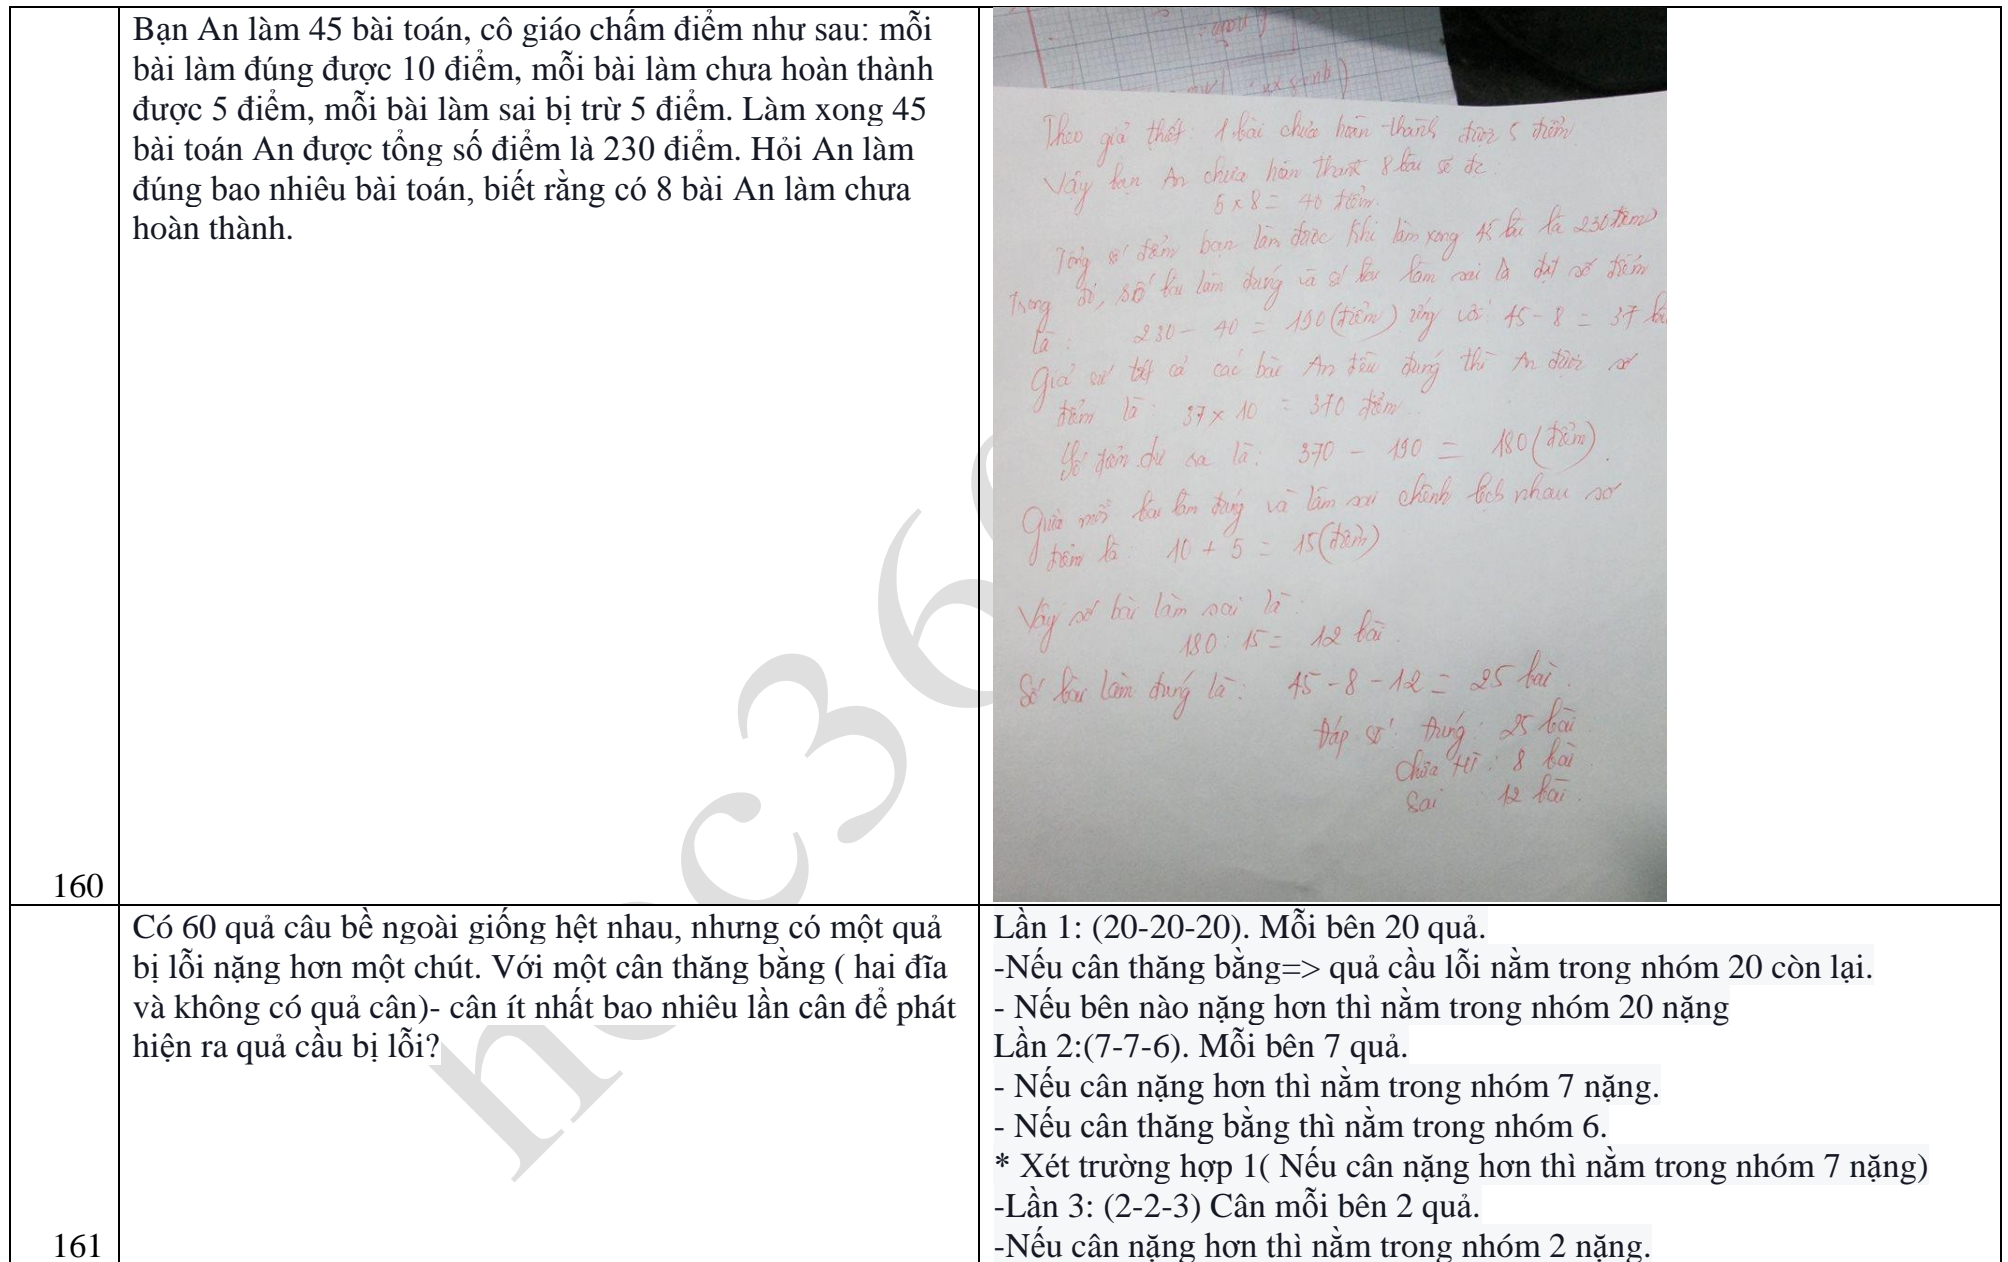 Bạn An làm 45 bài toán, cô giáo chấm điểm như sau: mỗi
bài làm đúng được 10 điểm, mỗi bài làm chưa hoàn thành
được 5 điểm, mỗi bài làm sai bị trừ 5 điểm. Làm xong 45
bài toán An được tổng số điểm là 230 điểm. Hỏi An làm
đúng bao nhiêu bài toán, biết rằng có 8 bài An làm chưa
hoàn thành.
160
Theo giả thiết: 1 bài chưa hoàn thành được 5 điểm
Vậy bạn An chưa hoàn thành 8 bài sẽ đc
5 x 8 = 40 điểm.
Tổng số điểm bạn làm được khi làm xong 45 bài là 230 điểm
trong đó, số bài làm đúng và số bài làm sai là đạt số điểm
là: 230 - 40 = 190 (điểm) ứng với: 45 - 8 = 37 bài
Giả sử tất cả các bài An đều đúng thì An được số
điểm là: 37 x 10 = 370 điểm
Số điểm dư ra là: 370 - 190 = 180 (điểm).
Giữa mỗi bài làm đúng và làm sai chênh lệch nhau số
điểm là: 10 + 5 = 15 (điểm)
Vậy số bài làm sai là:
180 : 15 = 12 bài.
Số bài làm đúng là: 45 - 8 - 12 = 25 bài.
Đáp số: Đúng: 25 bài
Chưa HT: 8 bài
Sai : 12 bài.
Có 60 quả câu bề ngoài giống hệt nhau, nhưng có một quả
bị lỗi nặng hơn một chút. Với một cân thăng bằng ( hai đĩa
và không có quả cân)- cân ít nhất bao nhiêu lần cân để phát
hiện ra quả cầu bị lỗi?
161
Lần 1: (20-20-20). Mỗi bên 20 quả.
-Nếu cân thăng bằng=> quả cầu lỗi nằm trong nhóm 20 còn lại.
- Nếu bên nào nặng hơn thì nằm trong nhóm 20 nặng
Lần 2:(7-7-6). Mỗi bên 7 quả.
- Nếu cân nặng hơn thì nằm trong nhóm 7 nặng.
- Nếu cân thăng bằng thì nằm trong nhóm 6.
* Xét trường hợp 1( Nếu cân nặng hơn thì nằm trong nhóm 7 nặng)
-Lần 3: (2-2-3) Cân mỗi bên 2 quả.
-Nếu cân nặng hơn thì nằm trong nhóm 2 nặng.